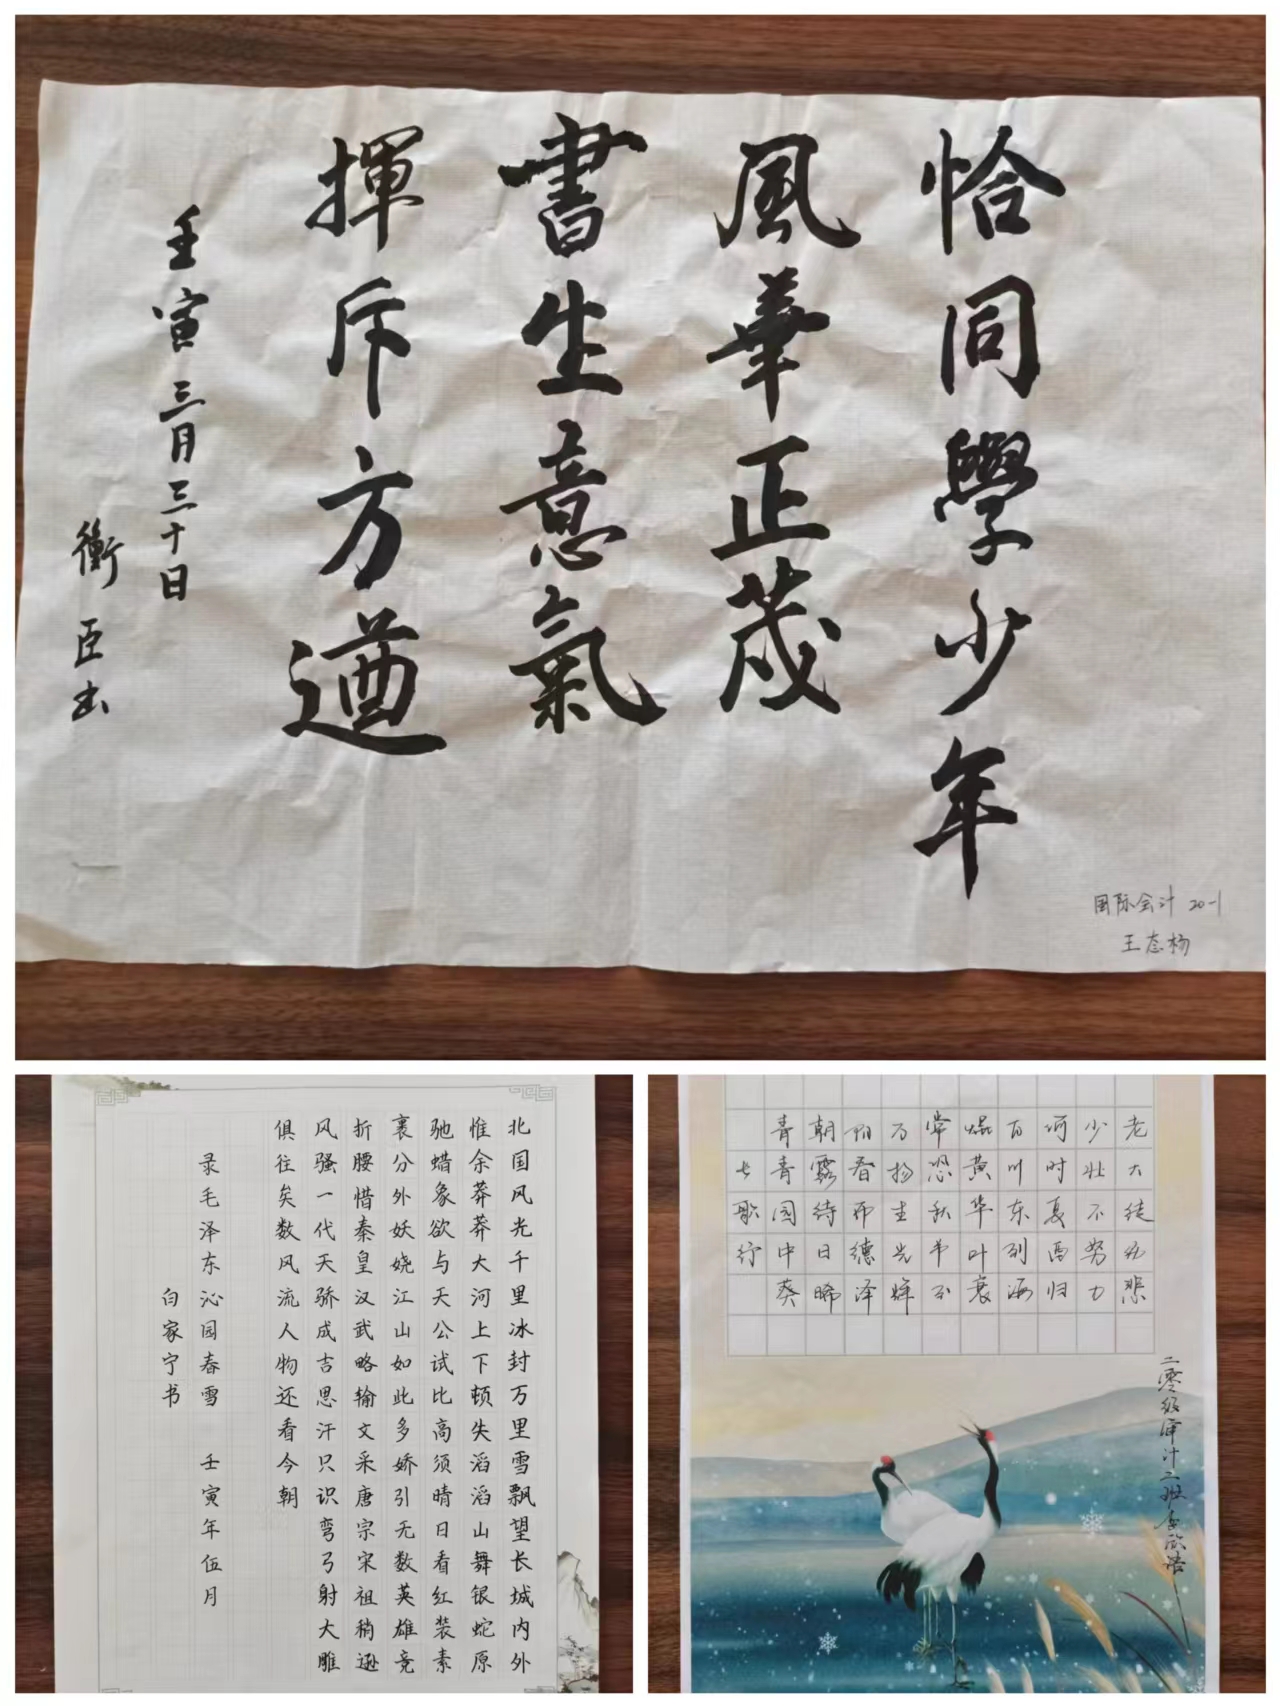 恰同學少年
風華正茂
書生意氣
揮斥方遒
壬寅三月三十日
衡臣书
国际会计 20-1
王
北国风光千里冰封万里雪飘望长城内外
惟余莽莽大河上下顿失滔滔山舞银蛇原
驰蜡象欲与天公试比高须晴日看红装素
裹分外妖娆江山如此多娇引无数英雄竞
折腰惜秦皇汉武略输文采唐宗宋祖稍逊
风骚一代天骄成吉思汗只识弯弓射大雕
俱往矣数风流人物还看今朝
录毛泽东沁园春雪 壬寅年伍月
白家宁书
长歌行
青青园中葵
朝露待日晞
阳春布德泽
万物生光辉
常恐秋节至
焜黄华叶衰
百川东到海
何时复西归
少壮不努力
老大徒伤悲
二零级审计二班李欣